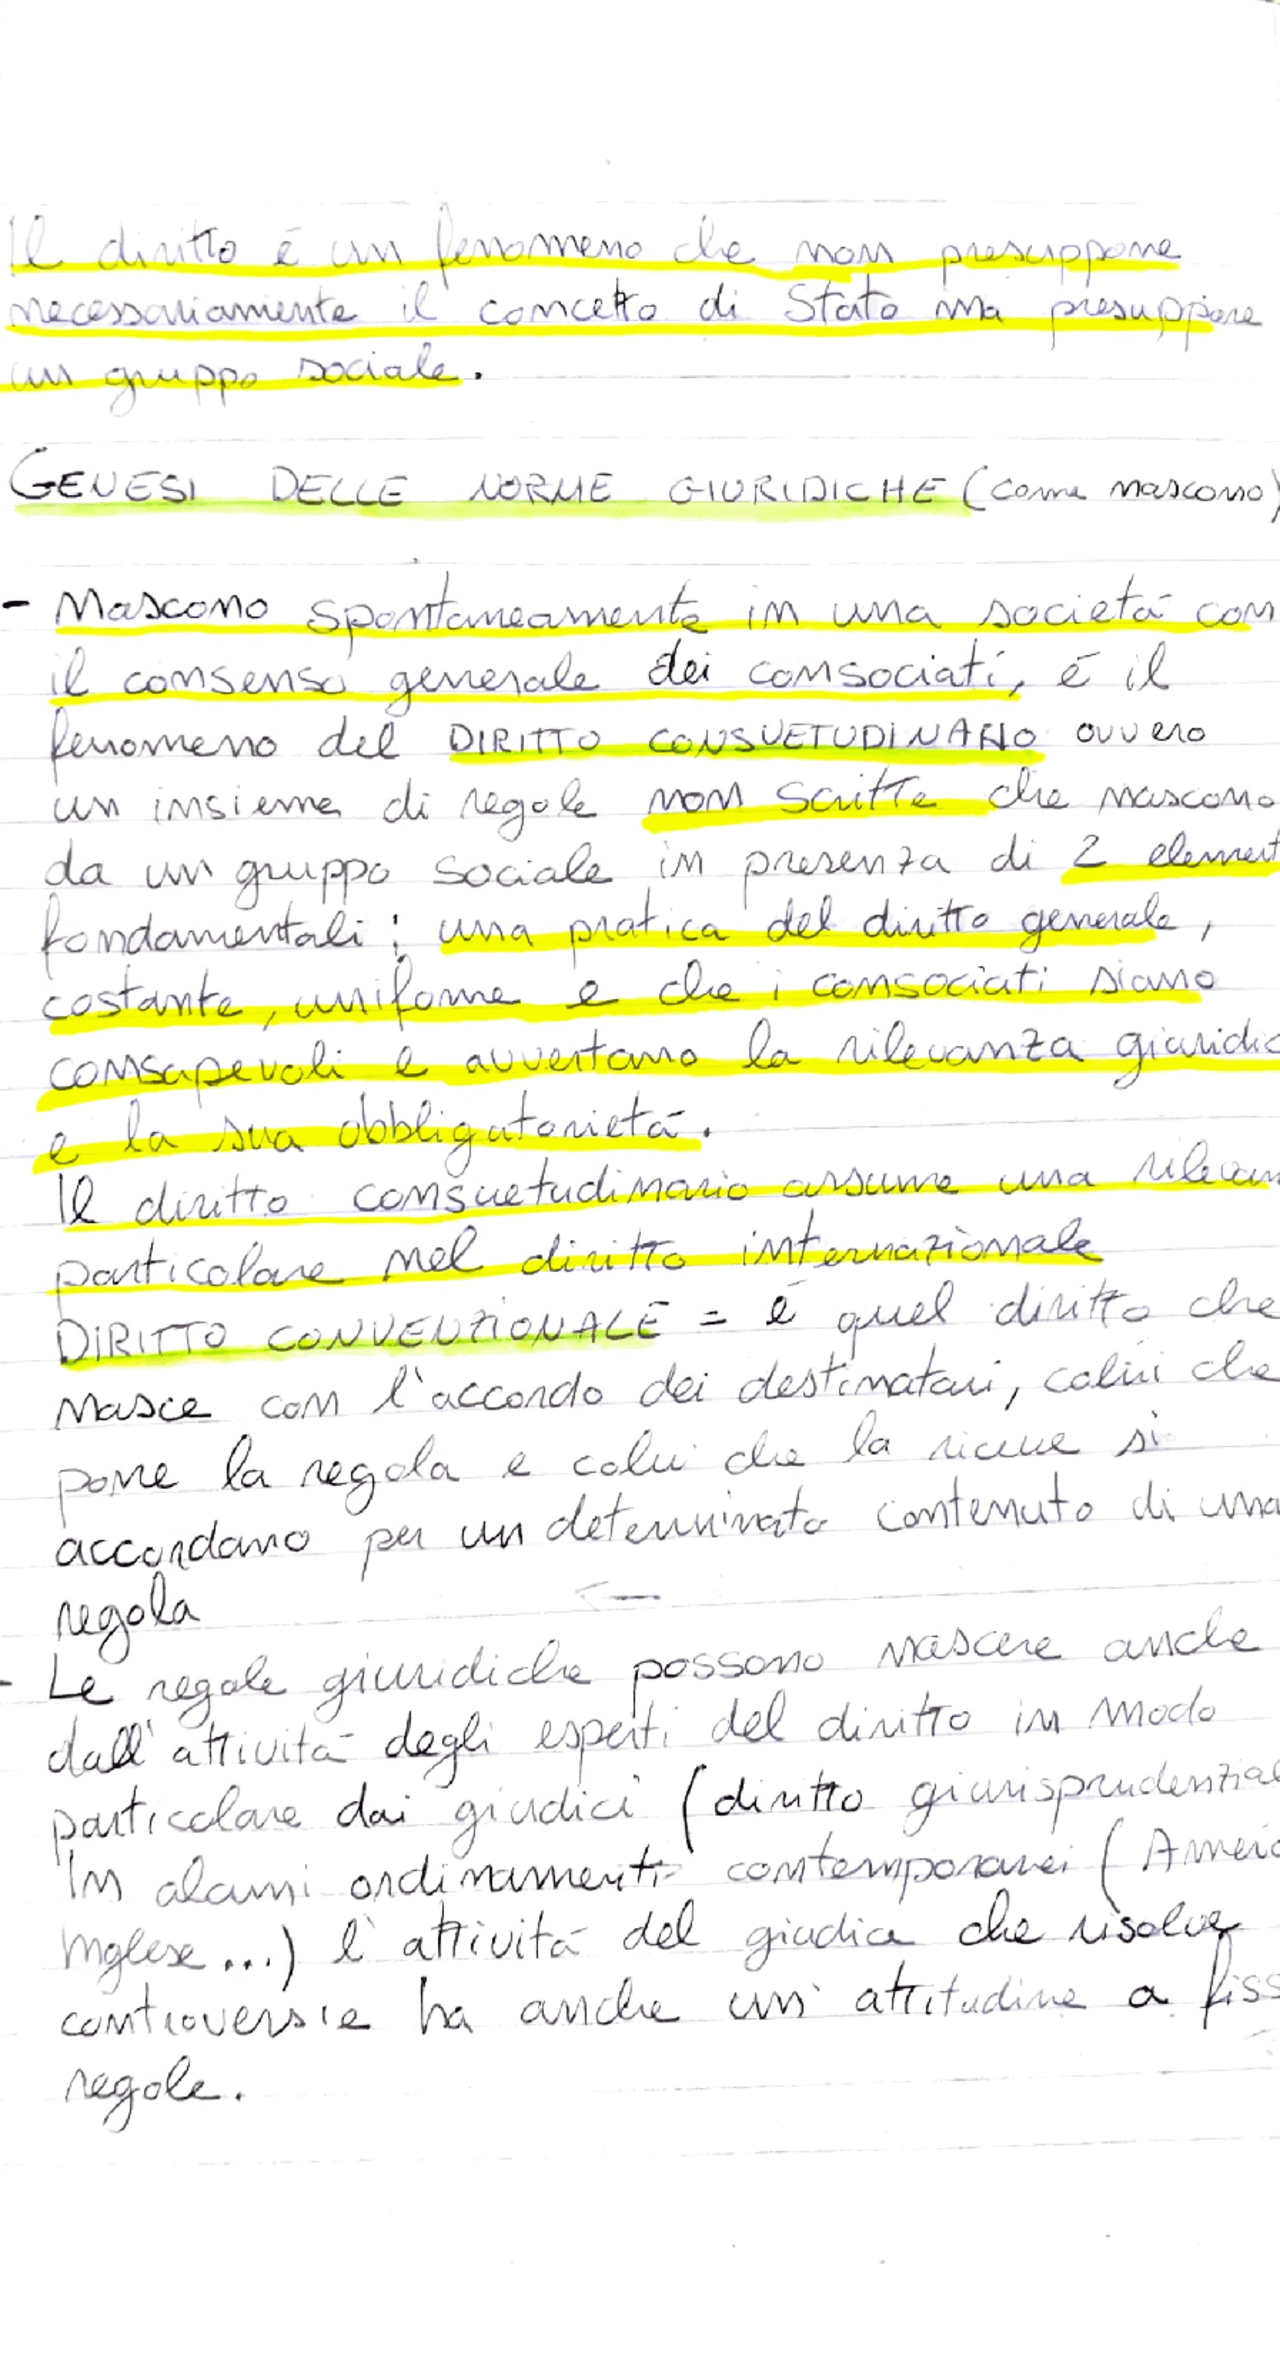 Il diritto è un fenomeno che non presuppone
necessariamente il concetto di Stato ma presuppone
un gruppo sociale.
GENESI DELLE NORME GIURIDICHE (come nascono)
- Nascono spontaneamente in una società con
il consenso generale dei consociati, è il
fenomeno del DIRITTO CONSUETUDINARIO ovvero
un insieme di regole non scritte che nascono
da un gruppo sociale in presenza di 2 element
fondamentali: una pratica del diritto generale,
costante, uniforme e che i consociati siano
consapevoli e avvertano la rilevanza giuridic
e la sua obbligatorietà.
Il diritto consuetudinario assume una rilevan
particolare nel diritto internazionale
DIRITTO CONVENZIONALE = è quel diritto che
nasce con l'accordo dei destinatari, colui che
pone la regola e colui che la riceve si
accordano per un determinato contenuto di una
regola
- Le regole giuridiche possono nascere anche
dall'attività degli esperti del diritto in modo
particolare dai giudici (diritto giurisprudenzial
In alcuni ordinamenti contemporanei (Americ
Inglese...) l'attività del giudice che risolve
controversie ha anche un'attitudine a fiss
regole.